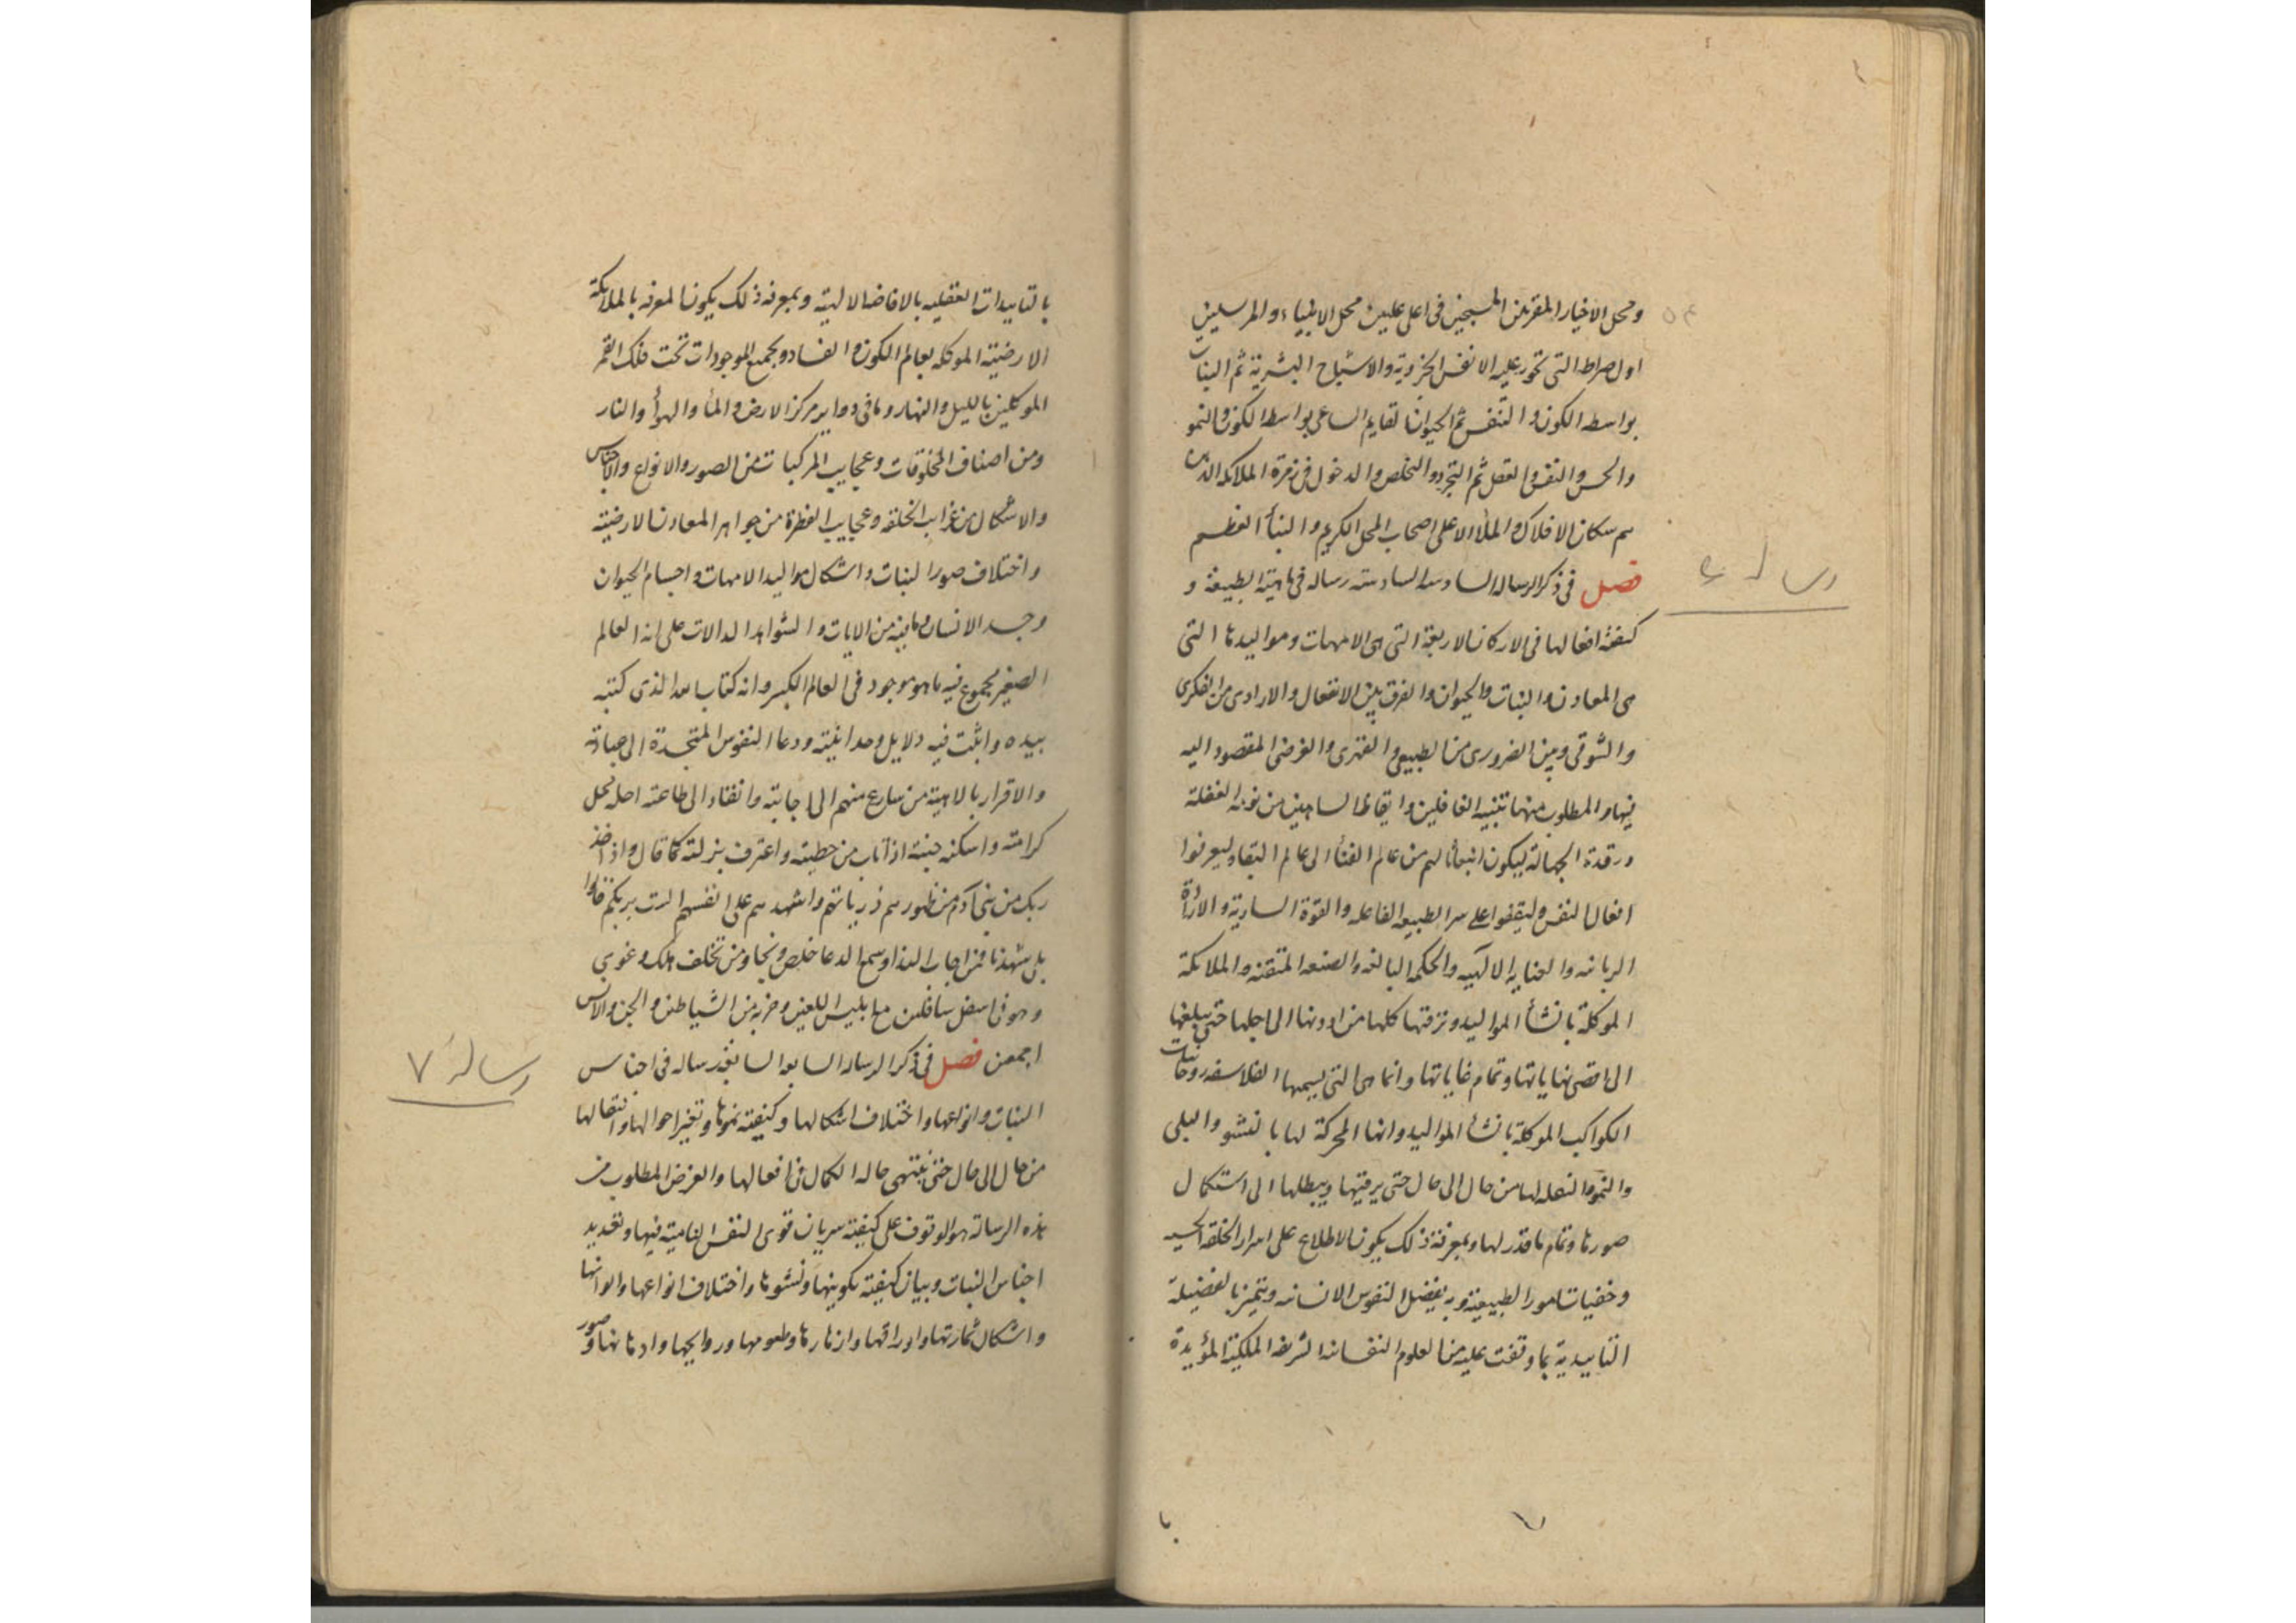 ومحل الاخيار المقربين المسبحين فى اعلى عليين محل الانبياء والمرسلين
اول صراط التى تجوز عليه الانفس الجزوية والاشباح البشرية ثم النبات
بواسطه الكون و التنفس ثم الحيوان بواسطه الكون والنمو
والحس والنفس والعقل ثم التجرد والتخلص والدخول فى زمرة الملائكه الذين
هم سكان الافلاك والملأ الاعلى اصحاب المحل الكريم و النبأ العظيم
رسالهٔ ۶
فصل فى ذكر الرساله السادسه السادسته رساله فى ماهية الطبيعة و
كيفية افعالها فى الاركان الاربعة التى هى الامهات ومواليدها التى
هى المعادن والنبات والحيوان والفرق بين الافعال والارادى من الفكرى
والشوقى وبين الضرورى من الطبيعى والقهرى والغرض المقصود اليه
فيها والمطلوب منها تنبيه الغافلين وايقاظ الساهين من نومه الغفلة
ورقدة الجهالة ليكون انبعاثا لهم من عالم الفنأ الى عالم البقا وليعرفوا
افعال النفس وليقفوا على سر الطبيعه الفاعله والقوة السارية والارادة
الربانيه والعنايه الالهيه والحكمه البالغه والصنعه المتقنه والملائكة
الموكلة بانشأ المواليد وترقيها كلها من ادونها الى اجلها حتى يبلغها
الى اقصى نهاياتها وتمام غاياتها وانها هى التى يسميها الفلاسفه روحانيات
الكواكب الموكلة بانشأ المواليد وانها المحركة لها بالنشو والبلى
والنمو والنقله لها من حال الى حال حتى يرقيها ويبطلها الى استكمال
صورها وتمام ما قدر لها وبمعرفة ذلك يكون الاطلاع على اسرار الخلقه
وخفيات امور الطبيعية وبه يفضل النفوس الانسانيه ويتميز بالفضيلة
التاييدية بما وقفت عليه من العلوم النفسانيه الشريفه الملكية المؤيدة
بالتاييدات العقليه بالافاضه الالهية وبمعرفه ذلك يكون المعرفه بالملائكة
الارضية الموكله بعالم الكون و الفساد وبجميع الموجودات تحت فلك القمر
الموكلين بالليل والنهار وما فى دواير مركز الارض و الماٴ والهوأ والنار
ومن اصناف المخلوقات وعجايب المركبات من الصور والانواع والاجناس
والاشكال من غرايب الخلقه وعجايب الفطرة من جواهر المعادن الارضية
واختلاف صور النبات واشكال مواليد الامهات واجسام الحيوان
وجسد الانسان وما فيه من الايات والشواهد الدالات على انه العالم
الصغير مجموع فيه ما هو موجود فى العالم الكبير وانه كتاب الله الذى كتبه
بيده واثبت فيه دلايل وحدانيته ودعا النفوس المتجسدة الى عبادته
والاقرار بالاهيته من سارع منهم الى اجابته وانقاد الى طاعته احله محل
كرامته واسكنه جنته اذا تاب من خطيئته واعترف بزلته كما قال واذ اخذ
ربك من بنى آدم من ظهورهم ذرياتهم واشهدهم على انفسهم الست بربكم قالوا
بلى شهدنا فمن اجاب الندا وسمع الدعا خلص ونجا ومن تخلف هلك وغوى
وهو فى اسفل سافلين مع ابليس اللعين وحزبه من الشياطين والجن والانس
رسالهٔ ۷
اجمعين فصل فى ذكر الرساله السابعه السابعة رساله فى اجناس
النبات وانواعها واختلاف اشكالها وكيفية نموها وتغير احوالها وانتقالها
من حال الى حال حتى ينتهى حاله الكمال فى افعالها والغرض المطلوب من
هذه الرسالة هو الوقوف على كيفية سريان قوى النفس النامية فيها وتعديد
اجناس النبات وبيان كيفية تكوينها ونشوها واختلاف انواعها والوانها
واشكال ثمارتها واوراقها وازهارها وطعومها وروايحها وادهانها وصور